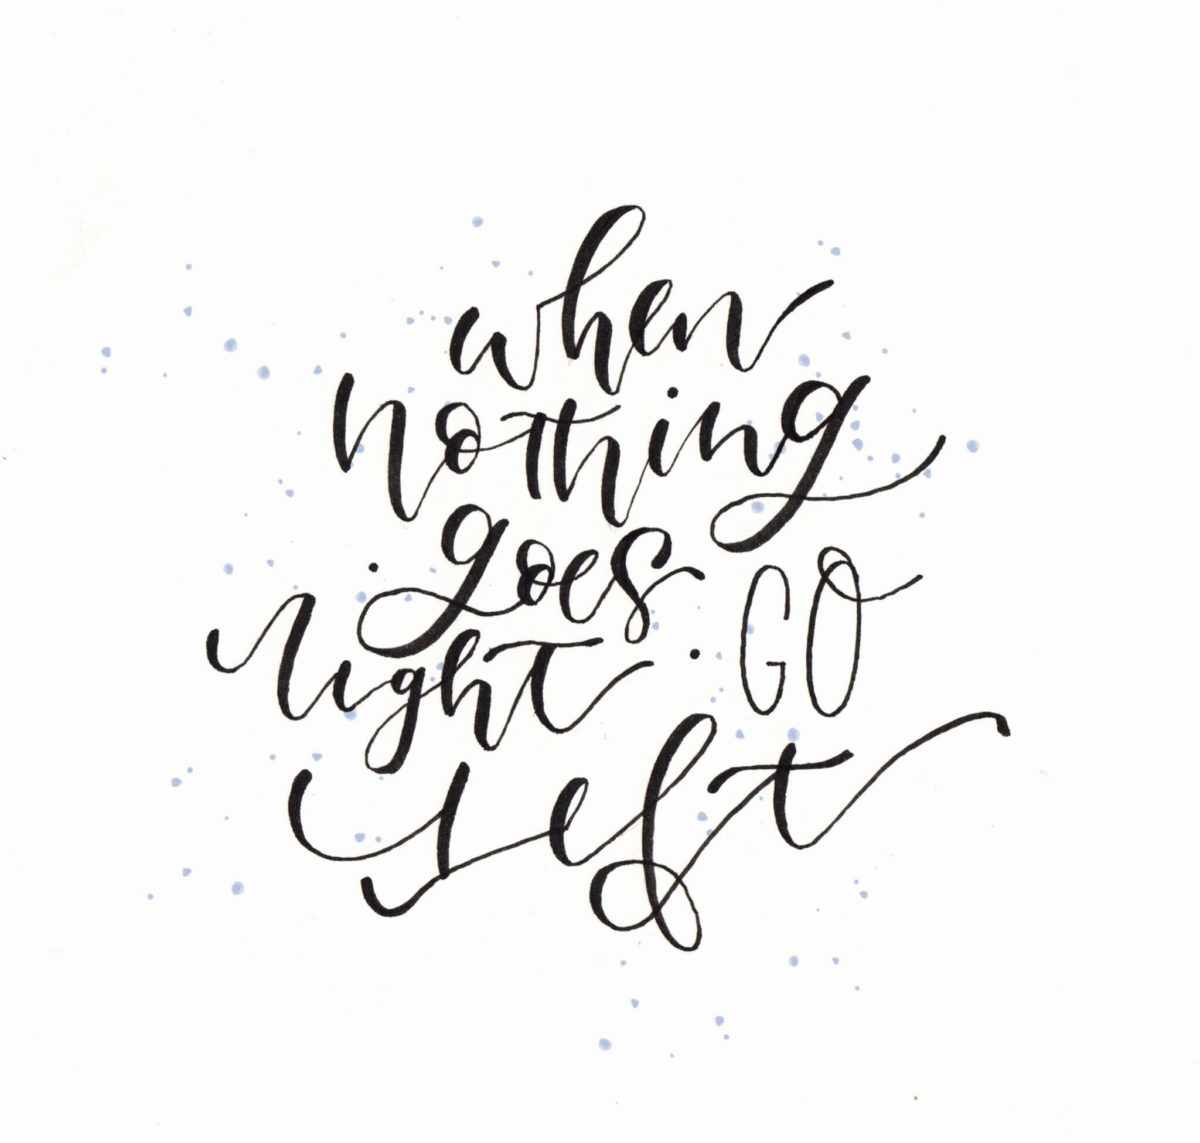 when
nothing
goes
right · GO
left